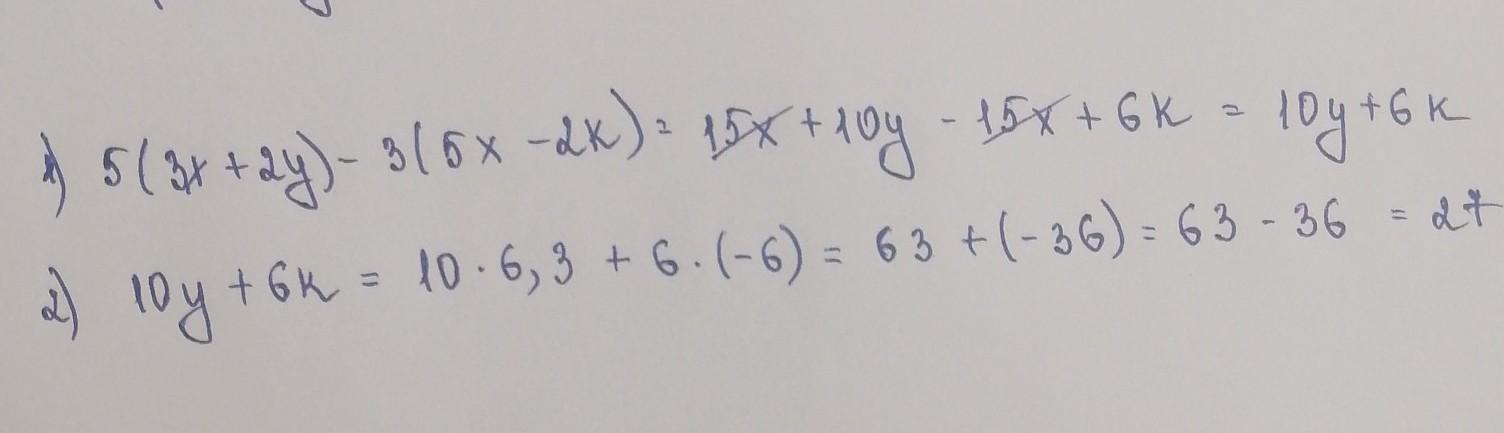 1) 5(3x+2y)-3(5x-2k)=15x+10y-15x+6k=10y+6k
2) 10y+6k=10·6,3+6·(-6)=63+(-36)=63-36=27